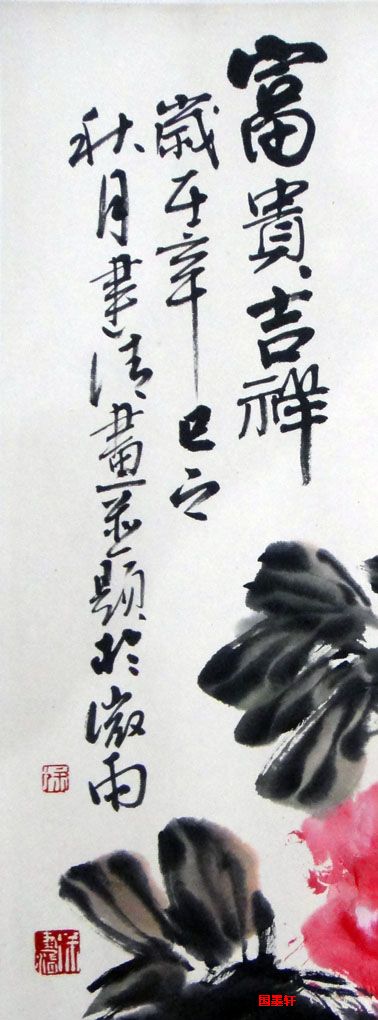 富貴吉祥
歲在辛巳之
秋月書清畫並題於微雨
国墨轩